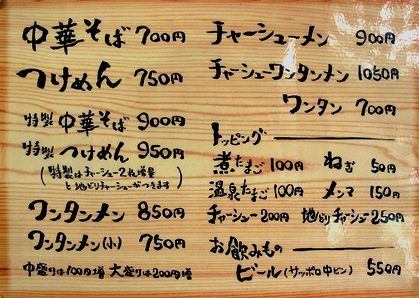 中華そば 700円
つけめん 750円
特製 中華そば 900円
特製 つけめん 950円
(特製はチャーシュー2枚増量
と地どりチャーシューがつきます)
ワンタンメン 850円
ワンタンメン(小) 750円
中盛りは100円増 大盛りは200円増
チャーシューメン 900円
チャーシューワンタンメン 1050円
ワンタン 700円
トッピング
煮たまご 100円 ねぎ 50円
温泉たまご 100円 メンマ 150円
チャーシュー 200円 地どりチャーシュー 250円
お飲みもの
ビール(サッポロ中ビン) 550円